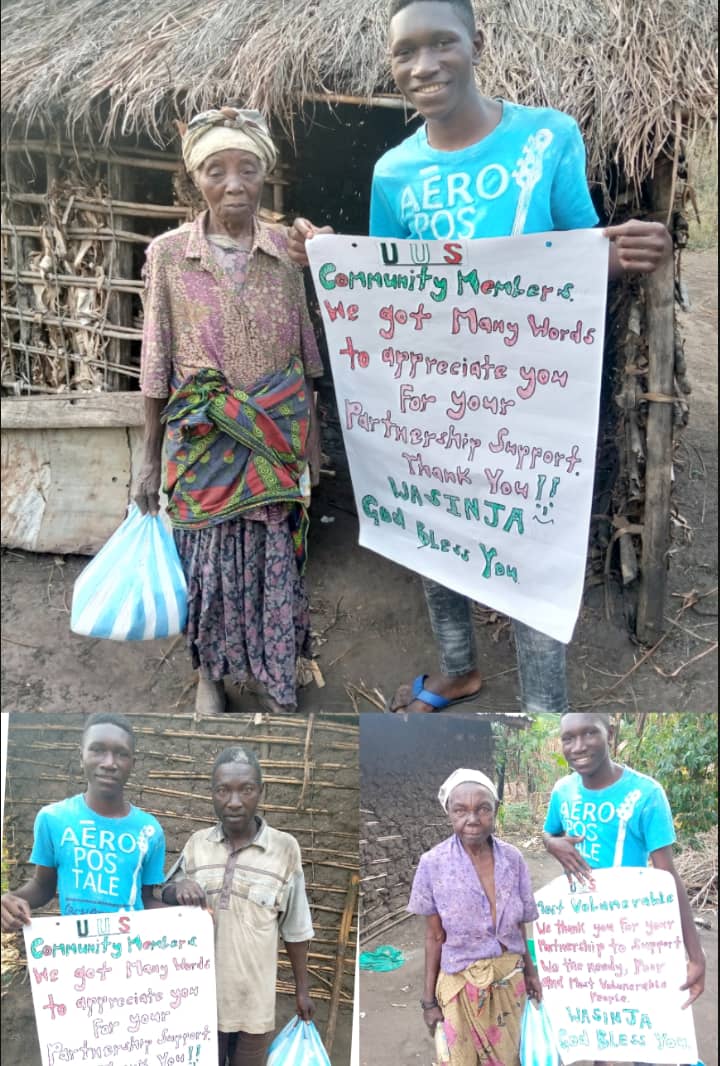 AÉRO
POS
U U S
Community Members.
We got Many Words
to appreciate you
For your
Partnership Support.
Thank You!!
WASINJA
God Bless You.
AÉRO
POS
TALE
U U S
Community Members
We got Many Words
to appreciate you
For your
Partnership Support.
Thank You!!
AÉRO
POS
TALE
U U S
Most Volunerable
We thank you For your
Partnership to Support
We the needy, Poor
and Most Volunerable
People.
WASINJA
God Bless You.